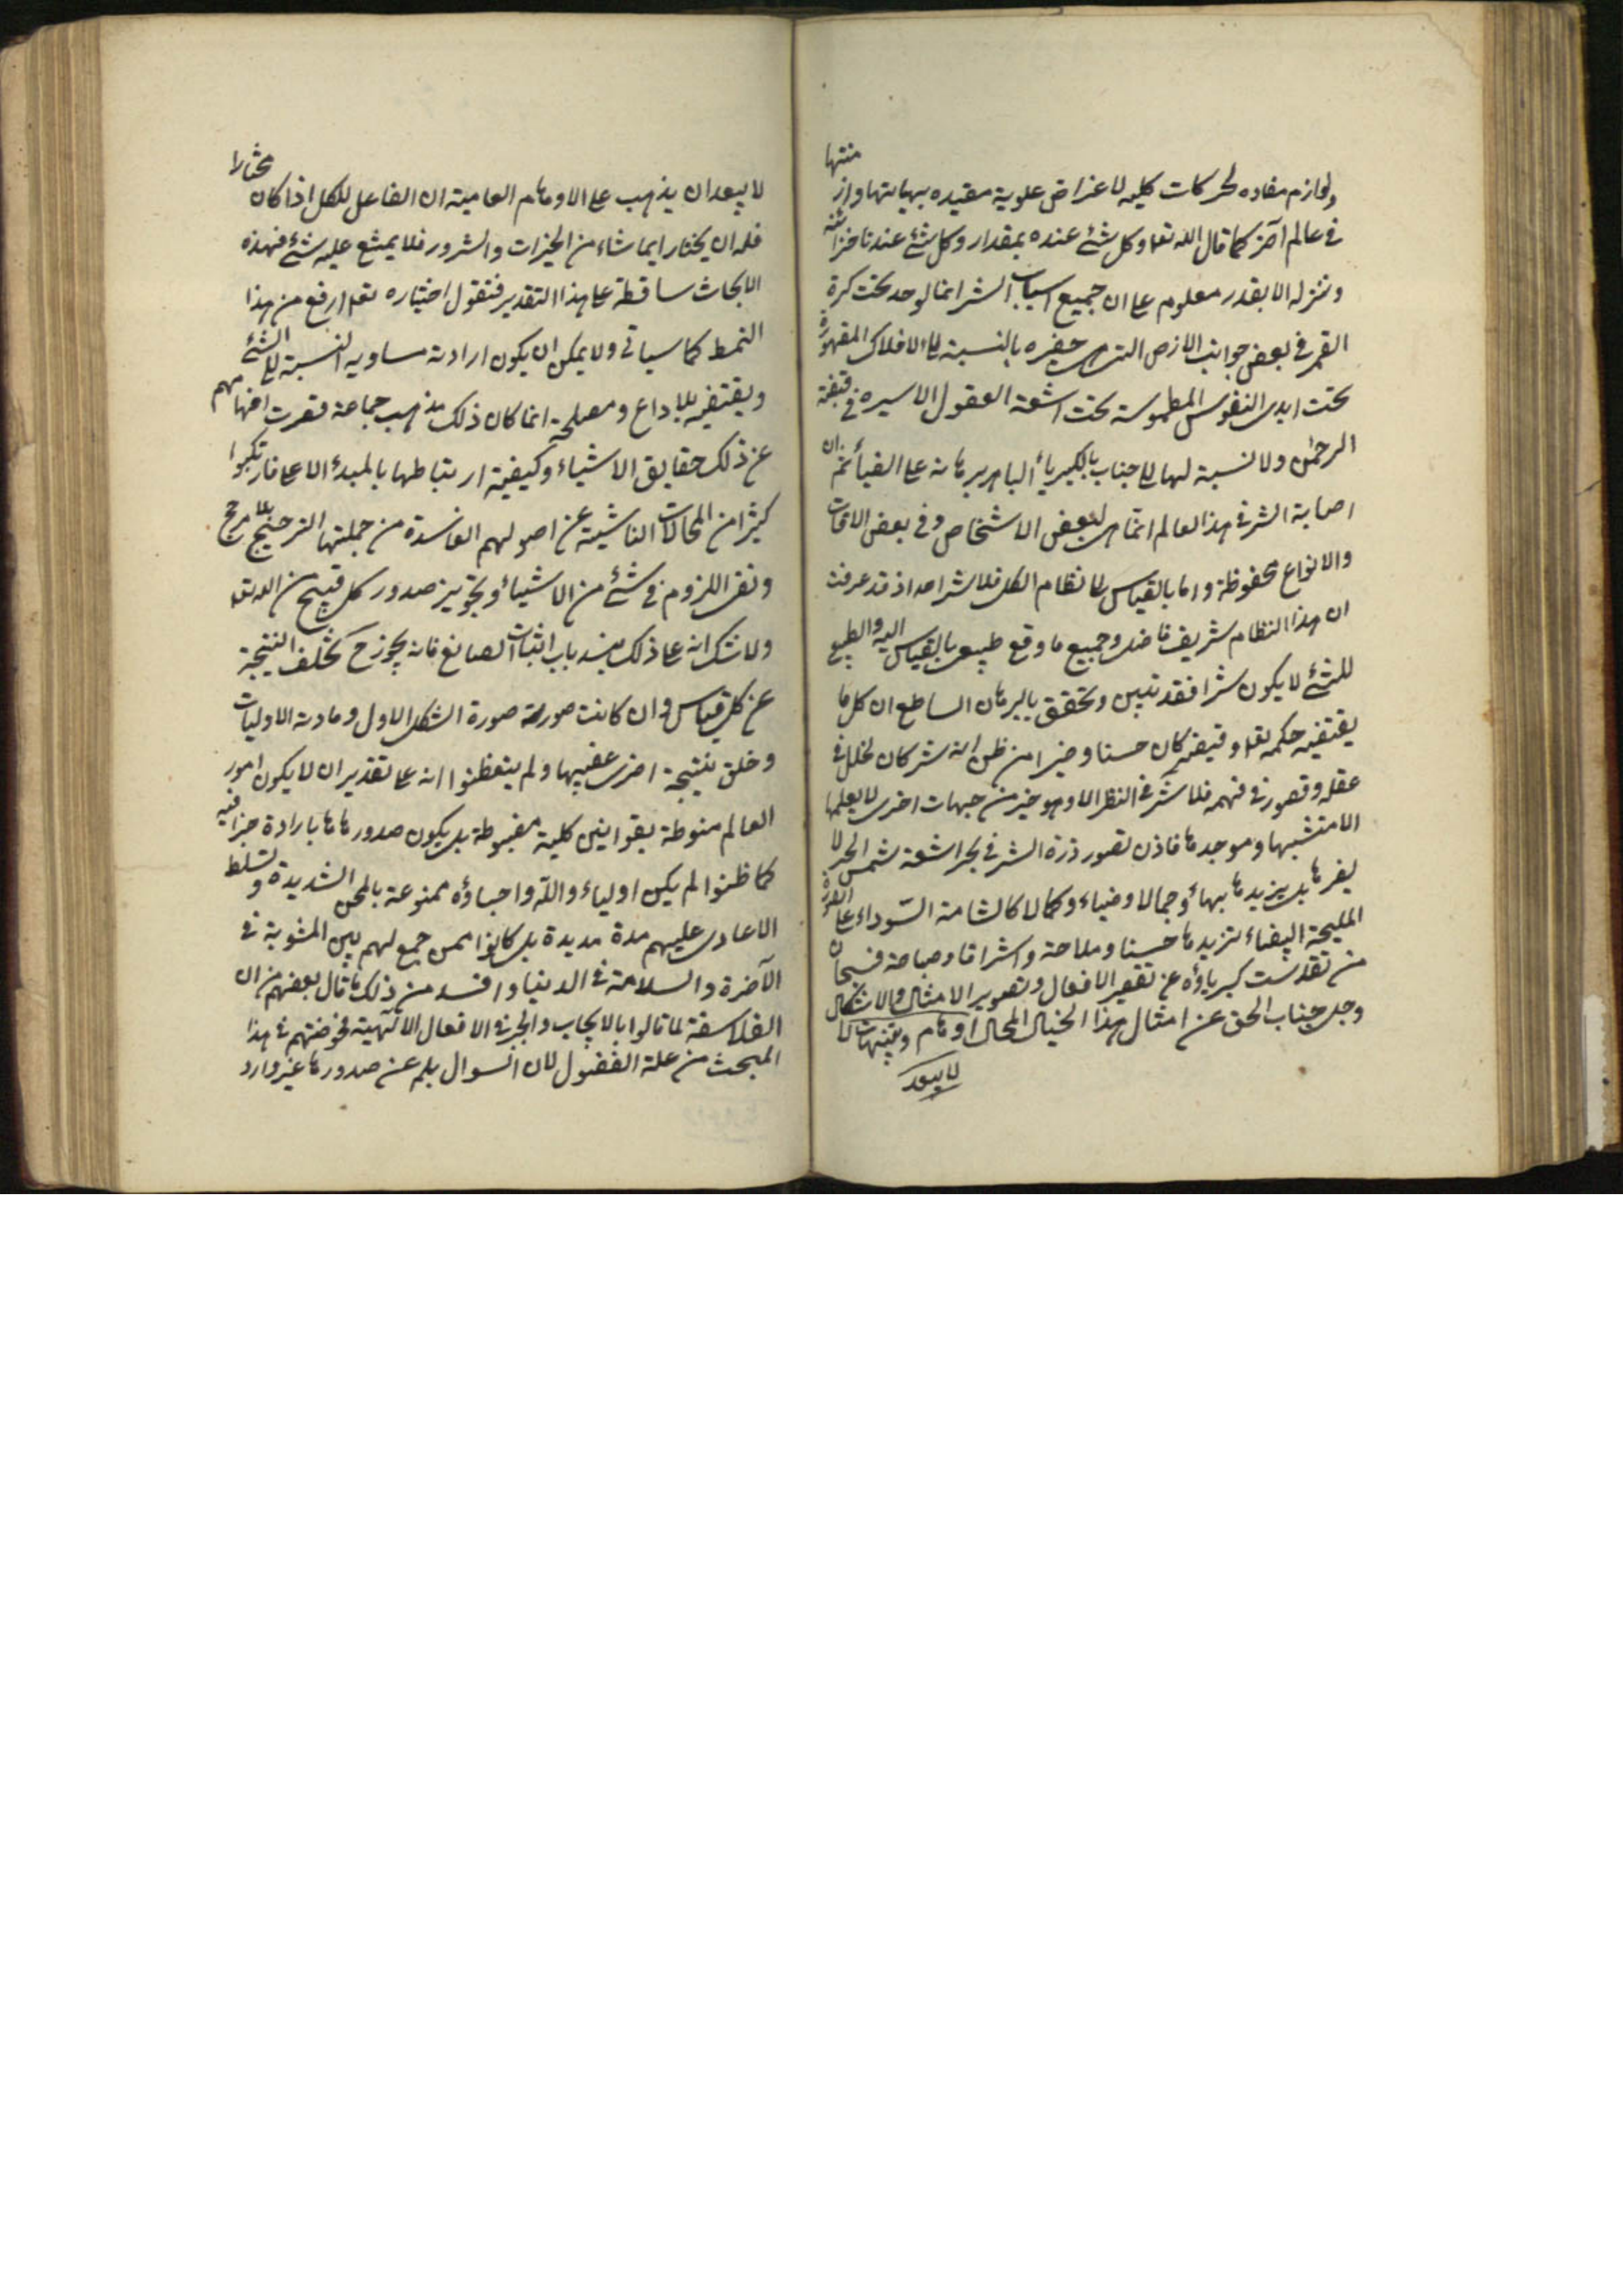 ولوازم مفاده لحركات كليه لاغراض علوية مقيده بهياتها واز منتها
فى عالم آخر كما قال الله تعا وكل شئ عنده بمقدار وكل شئ عندنا خزائنه
وننزله الا بقدر معلوم على ان جميع اسباب الشر انما لوحد تحت كرة
القمر فى بعض جوانب الارض التى هى حقيره بالنسبة الى الافلاك المقهورة
تحت ايدى النفوس المطموسة تحت اشعة العقول الاسيره فى قبضة
الرحمن ولا نسبة لها الى جناب الكبرياء الباهر برهانه على الضياء ثم ان
اصابة الشر فى هذا العالم انما هى لبعض الاشخاص وفى بعض الاوقات
والانواع محفوظة واما بالقياس الى نظام الكل فلا شر اصلا اذ قد عرفت
ان هذا النظام شريف فاضل وجميع ما وقع طبيعى بالقياس اليه والطبيع
للشئ لا يكون شرا فقد تبين وتحقق بالبرهان الساطع ان كل ما
يقتضيه حكمه تعا وقيضه كان حسنا وخيرا من ظن انه شر كان لخلل فى
عقله وقصور فى فهمه فلا شر فى النظر الا وهو خير من جهات اخرى لا يعلمها
الا منشيها وموجدها فاذن تصور ذرة الشر فى بحر اشعة شمس الخير لا
يضرها بل يزيدها بهاء وجمالا وضياء وكمالا كالشامة السوداء على الصورة
المليحة البيضاء تزيدها حسنا وملاحة واشراقا وصباحة فسبحان
من تقدست كبرياؤه عن تقصير الافعال وتصوير الامثال والاشكال
وجل جناب الحق عن امثال هذا الخيال المحال اوهام وتنبيهات لا
لا يبعد
لا يبعد ان يذهب على الاوهام العامية ان الفاعل للكل اذا كان مختارا
فله ان يختار ايما شاء من الخيرات والشرور فلا يمتنع عليه شئ فهذه
الابحاث ساقطة على هذا التقدير فنقول اختياره تعا ارفع من هذا
النمط كما سياتى ولا يمكن ان يكون ارادته مساويه النسبة الى الشئ
ويقتضيه بلا داع ومصلحة انما كان ذلك مذهب جماعة قصرت افهامهم
عن ذلك حقايق الاشياء وكيفية ارتباطها بالمبدء الاعلى فارتكبوا
كثيرا من المحالات الناشية عن اصولهم الفاسدة من جملتها الترجيح بلا مرجح
ونفى اللزوم فى شئ من الاشياء وتجويز صدور كل قبيح من الله تعا
ولا شك انه على ذلك يسد باب اثبات الصانع فانه يجوز ح تخلف النتيجة
عن كل قياس وان كانت صورته صورة الشكل الاول ومادته الاوليات
وخلق نتيجة اخرى عقيبها ولم يتفطنوا انه على تقدير ان لا يكون امور
العالم منوطة بقوانين كلية مضبوطة بل يكون صدورها بارادة جزافيه
كما ظنوا لم يكن اولياء والله واحباؤه ممنوعة بالمحن الشديدة وتسلط
الاعادى عليهم مدة مديدة بل كانوا ممن جمع لهم بين المثوبة فى
الآخرة والسلامة فى الدنيا وافسد من ذلك ما قال بعضهم من ان
الفلاسفة لما قالوا بالايجاب والجبر فى الافعال الالهية فخوضهم فى هذا
المبحث من علة الفضول لان السوال بلم عن صدورها غير وارد